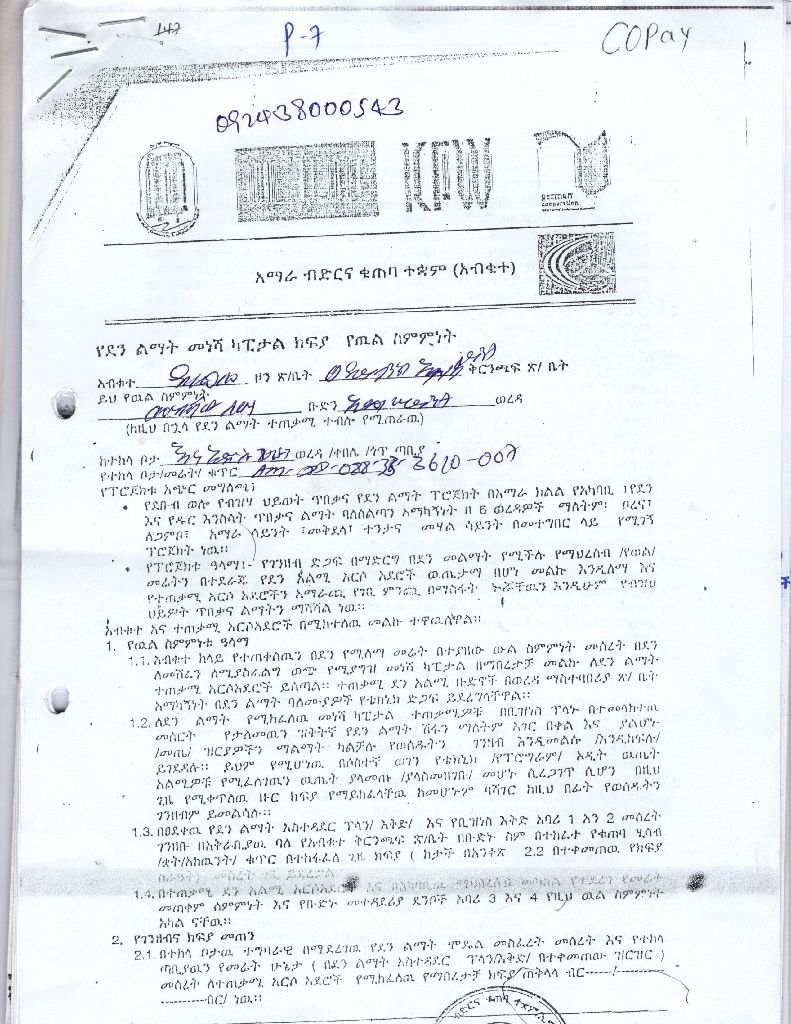 147
P-7
COPay
092438000543
KFW
german
cooperation
አማራ ብድርና ቁጠባ ተቋም (አብቁተ)
የደን ልማት መነሻ ካፒታል ክፍያ የዉል ስምምነት
አብቁተ ዞን ጽ/ቤት ቅርንጫፍ ጽ/ ቤት
ይህ የዉል ስምምነት
ቡድን ወረዳ
(ከዚህ በኋላ የደን ልማት ተጠቃሚ ተብሎ የሚጠራዉ)
ከተከላ ቦታ ወረዳ /ቀበሌ /ጎጥ ጣቢያ
የተከላ ቦታ/መሬት/ ቁጥር 3610-007
የፕሮጀክቱ አጭር መግለጫ፤
• የደቡብ ወሎ የብዝሃ ህይወት ጥበቃና የደን ልማት ፕሮጀክት በአማራ ክልል የአካባቢ ፣የደን
እና የዱር እንስሳት ጥበቃና ልማት ባለስልጣን አማካኝነት በ 6 ወረዳዎች ማለትም፡ ቦረና፣
ለጋምቦ፣ አማራ ሳይንት ፣መቅደላ፣ ተንታና መሃል ሳይንት በመተግበር ላይ የሚገኝ
ፕሮጀክት ነዉ።
• የፕሮጀክቱ ዓላማ፡- የገንዘብ ድጋፍ በማድርግ በደን መልማት የሚችሉ የማህረሰብ /የወል/
መሬትን በተደራጁ የደን አልሚ አርሶ አደሮች ዉጤታማ በሆነ መልኩ እንዲለማ እና
የተጠቃሚ አርሶ አደሮችን አማራጪ የገቢ ምንጪ በማስፋት ኑሯቸዉን እንዲሁም የብዝሃ
ህይዎት ጥበቃና ልማትን ማሻሻል ነዉ።
አብቁተ እና ተጠቃሚ አርሶአደሮች በሚከተለዉ መልኩ ተዋዉለዋል።
1. የዉል ስምምነቱ ዓላማ
1.1. አብቁተ ከላይ የተጠቀሰዉን በደን የሚለማ መሬት በተያዘዉ ዉል ስምምነት መሰረት በደን
ለመሸፈን ለሚያስፈልግ ወጭ የሚያግዝ መነሻ ካፒታል በማበረታቻ መልክ ለደን ልማት
ተጠቃሚ አርሶአደሮች ይሰጣል። ተጠቃሚ ደን አልሚ ቡድኖች በወረዳ ማስተባበሪያ ጽ/ ቤት
አማካኝነት በደን ልማት ባለሙያዎች የቴክኒክ ድጋፍ ይደረግላቸዋል።
1.2. ለደን ልማት የሚከፈለዉ መነሻ ካፒታል ተጠቃሚዎቹ በቢዝነስ ፕላኑ በተመላከተዉ
መሰርት የታለመዉን ዝቅተኛ የደን ልማት ሽፋን ማለትም አገር በቀል እና ያልሆኑ
/መጤ/ ዝርያዎችን ማልማት ካልቻሉ የወሰዱትን ገንዘብ እንዲመልሱ /እንዲከፍሉ/
ይገደዳሉ። ይህም የሚሆነዉ በሶስተኛ ወገን የቴክኒክ /የፕሮግራም/ ኦዲት ዉጤት
አልሚዎቹ የሚፈለገዉን ዉጤት ያላመጡ /ያላስመዘገቡ/ መሆኑ ሲረጋገጥ ሲሆን በዚህ
ጊዜ የሚቀጥለዉ ዙር ክፍያ የማይከፈላቸዉ ከመሆኑም ባሻገር ከዚህ በፊት የወሰዱትን
ገንዘብም ይመልሳሉ።
1.3. በፀደቀዉ የደን ልማት አስተዳደር ፕላን/ እቅድ/ እና የቢዝነስ እቅድ አባሪ 1 እን 2 መሰረት
ገንዘቡ በአቅራቢያዉ ባለ የአብቁተ ቅርንጫፍ ጽ/ቤት በቡድኑ ስም በተከፈተ የቁጠባ ሂሳብ
/ቋት/አካዉንት/ ቁጥር በተከፋፈለ ጊዜ ክፍያ ( ከታች በአንቀጽ 2.2 በተቀመጠዉ የክፍያ
መሰረት ይደረጋል
1.4. በተጠቃሚ ደን አልሚ አርሶአደሮች እና በአካባቢዉ ማህበረሰብ መካከል የተደረገ የመሬት
መጠቀም ስምምነት እና የቡድኑ መተዳደሪያ ደንቦች አባሪ 3 እና 4 የዚህ ዉል ስምምነት
አካል ናቸዉ።
2. የገንዘብና ክፍያ መጠን
2.1. በተከላ ቦታዉ ተግባራዊ በሚደረገዉ የደን ልማት ሞዴል መስፈረት መሰረት እና የተከላ
ጣቢያዉን የመሬት ሁኔታ ( በደን ልማት አስተዳደር ፕላን/እቅድ/ በተቀመጠው ዝርዝር )
መሰረት ለተጠቃሚ አርሶ አደሮች የሚከፈለዉ የማበረታቻ ክፍያ/ጠቅላላ ብር------/----------
----------ብር/ ነዉ።
ብድርና ቁጠባ ተቋም